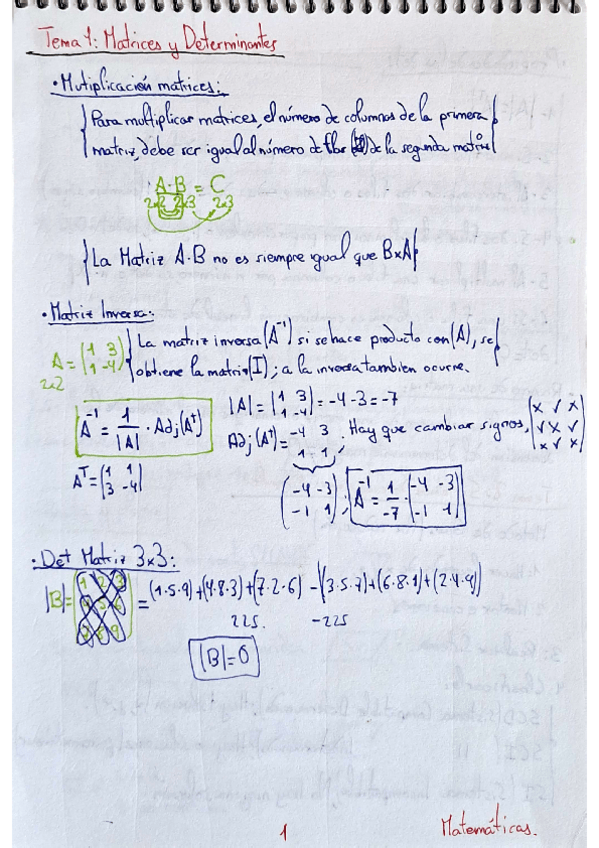 Tema 1: Matrices y Determinantes
· Mutiplicación matrices:
Para multiplicar matrices, el número de columnas de la primera
matriz, debe ser igual al número de filas de la segunda matriz
A·B = C
2x2 2x3 2x3
La Matriz A·B no es siempre igual que BxA
· Matriz Inversa:
A = (1 3
1 -4)
2x2
La matriz inversa (A⁻¹) si se hace producto con (A), se
obtiene la matriz (I); a la inversa tambien ocurre.
A⁻¹ = 1/|A| · Adj(Aᵗ)
|A| = |1 3
1 -4| = -4-3 = -7
Adj(Aᵗ) = -4 3
1 1, Hay que cambiar signos,
|x √ x|
|√ x √|
|x √ x|
Aᵀ = |1 1
3 -4|
(-4 -3
-1 1);
A⁻¹ = 1/-7 · (-4 -3
-1 1)
· Det Matriz 3x3:
|B| = 1 2 3
4 5 6
7 8 9
= (1·5·9)+(4·8·3)+(7·2·6) -(3·5·7)+(6·8·1)+(2·4·9)
225. -225
|B|=0
1
Matemáticas.